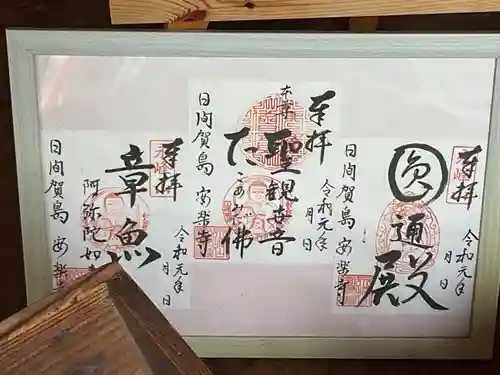 奉拝
圓通殿
令和元年
月 日
日間賀島 安楽寺
奉拝
本尊
聖観世音
たこあみだ佛
令和元年
月 日
日間賀島 安楽寺
奉拝
章魚
阿弥陀如
令和元年
月 日
日間賀島 安楽